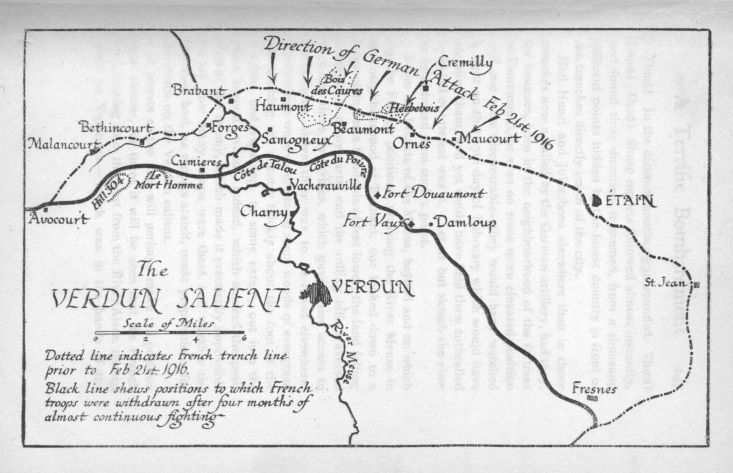 Direction of German Attack Feb 21st 1916
Cremilly
Bois
des Caures
Brabant
Haumont
Herbebois
Bethincourt
Forges
Samogneux
Beaumont
Ornes
Maucourt
Malancourt
Cumieres
Le
Mort Homme
Côte de Talou
Côte du Poivre
Hill 304
Vacherauville
Fort Douaumont
ÉTAIN
Avocourt
Charny
Fort Vaux
Damloup
The
VERDUN SALIENT
VERDUN
St. Jean
Scale of Miles
0 2 4 6
River Meuse
Dotted line indicates French trench line
prior to Feb 21st. 1916.
Black line shews positions to which French
troops were withdrawn after four months of
almost continuous fighting
Fresnes